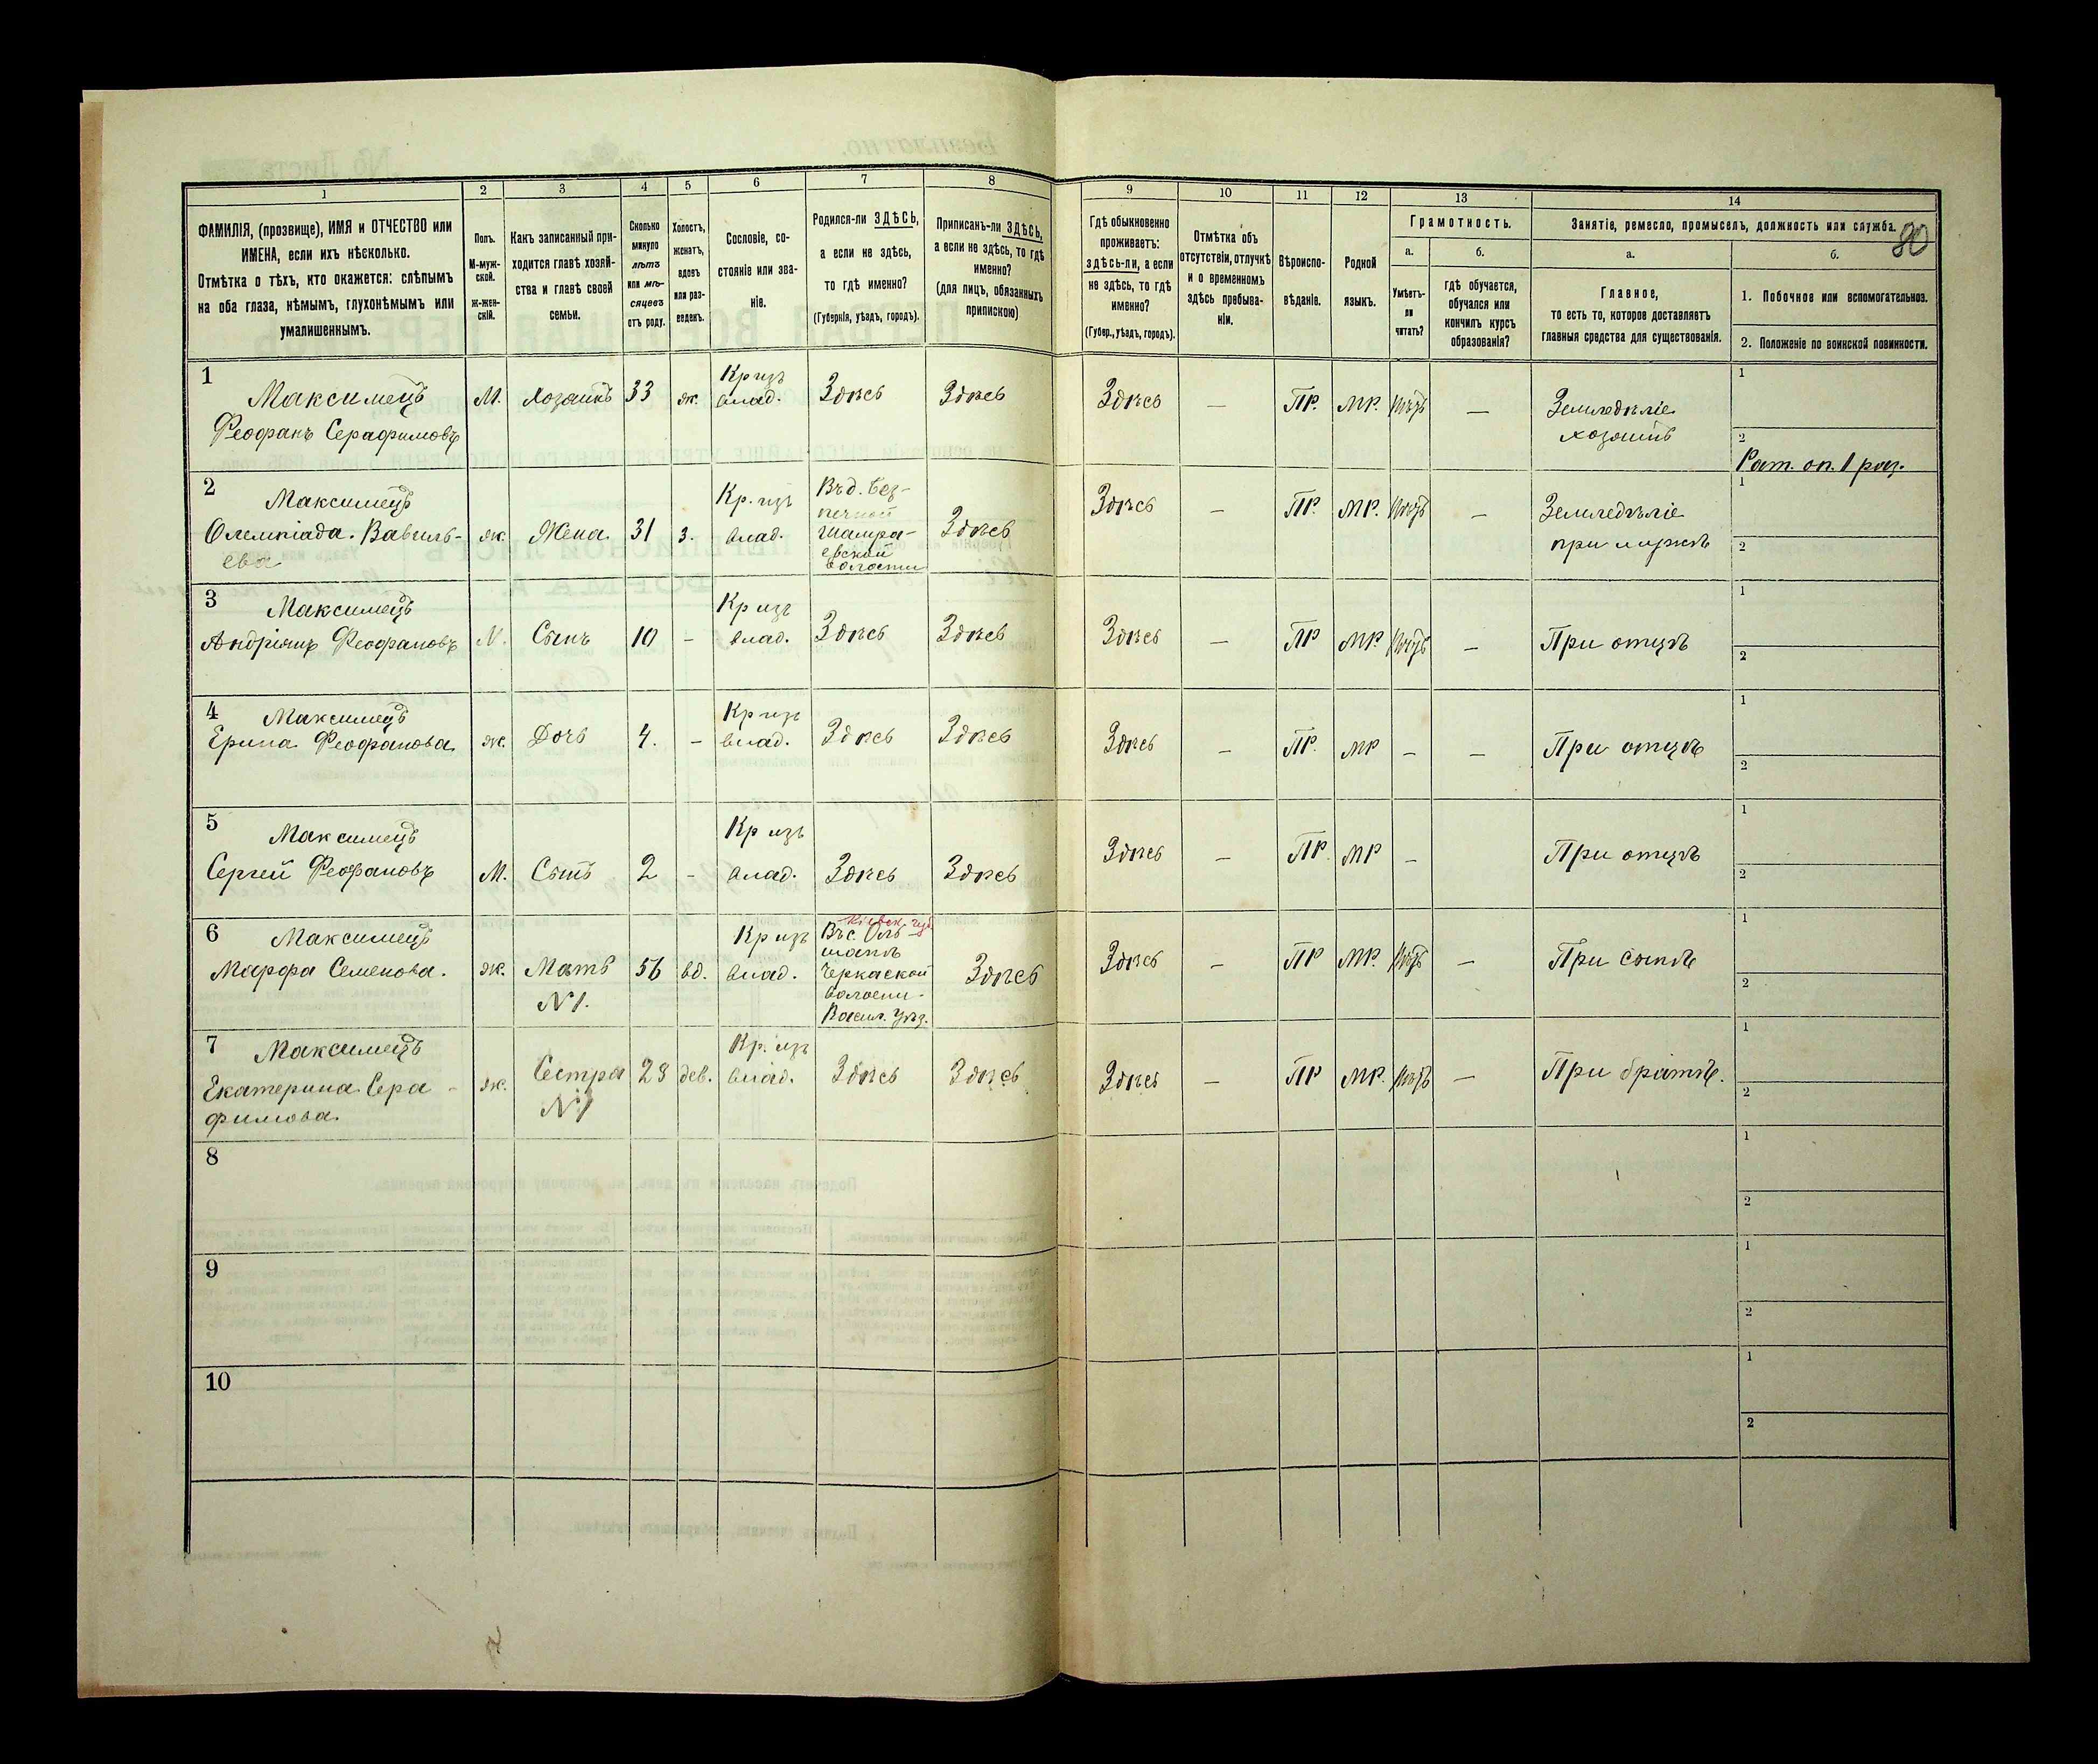 80
1
2
3
4
5
6
7
8
9
10
11
12
13
14
ФАМИЛІЯ, (прозвище), ИМЯ и ОТЧЕСТВО или
ИМЕНА, если ихъ нѣсколько.
Отмѣтка о тѣхъ, кто окажется: слѣпымъ
на оба глаза, нѣмымъ, глухонѣмымъ или
умалишеннымъ.
Полъ.
М-муж-
ской.
Ж-жен-
скій.
Какъ записанный при-
ходится главѣ хозяй-
ства и главѣ своей
семьи.
Сколько
минуло
лѣтъ
или мѣ-
сяцевъ
отъ роду.
Холостъ,
женатъ,
вдовъ
или раз-
веденъ.
Сословіе, со-
стояніе или зва-
ніе.
Родился-ли ЗДѢСЬ,
а если не здѣсь,
то гдѣ именно?
(Губернія, уѣздъ, городъ).
Приписанъ-ли ЗДѢСЬ,
а если не здѣсь, то гдѣ
именно?
(для лицъ, обязанныхъ
припискою)
Гдѣ обыкновенно
проживаетъ:
здѣсь-ли, а если
не здѣсь, то гдѣ
именно?
(Губер., уѣздъ, городъ).
Отмѣтка объ
отсутствіи, отлучкѣ
и о временномъ
здѣсь пребыва-
ніи.
Вѣроиспо-
вѣданіе.
Родной
языкъ.
Грамотность.
а.
Умѣетъ-
ли
читать?
б.
гдѣ обучается,
обучался или
кончилъ курсъ
образованія?
Занятіе, ремесло, промыселъ, должность или служба.
а.
Главное,
то есть то, которое доставляетъ
главныя средства для существованія.
б.
1. Побочное или вспомогательноe.
2. Положеніе по воинской повинности.
1
Максимецъ
Феофанъ Серафимовъ
М.
Хозяинъ
33
ж.
Кр изъ
влад.
Здѣсь
Здѣсь
Здѣсь
—
ПР.
МР.
—
Земледѣліе
хозяинъ
1
2
Рат. оп. 1 раз.
2
Максимецъ
Олемпіада. Вавиль-
ева
ж
Жена
31
з.
Кр. изъ
влад.
Въ д. Без-
печной
Шамра-
евской
волости
Здѣсь
Здѣсь
—
ПР.
МР.
—
Земледѣліе
при мужѣ
1
2
3
Максимецъ
Андріянъ Феофановъ
М.
Сынъ
10
-
Кр изъ
влад.
Здѣсь
Здѣсь
Здѣсь
—
ПР
МР.
—
При отцѣ
1
2
4
Максимецъ
Ерина Феофанова
ж.
Дочь
4.
-
Кр изъ
влад.
Здѣсь
Здѣсь
Здѣсь
—
ПР.
МР
—
—
При отцѣ
1
2
5
Максимецъ
Сергей Феофановъ
М.
Сынъ
2
-
Кр изъ
влад.
Здѣсь
Здѣсь
Здѣсь
—
ПР
МР
-
При отцѣ
1
2
6
Максимецъ
Марфа Семенова.
ж.
Мать
№1.
56
вд.
Кр изъ
влад.
Кіевск. губ.
Въ с. Оль-
шанкѣ
Черкаской
волости.
Васил. уѣз.
Здѣсь
Здѣсь
—
ПР
МР.
—
При сынѣ
1
2
7
Максимецъ
Екатерина Сера-
фимова.
ж.
Сестра
№1
28
дев.
Кр. изъ
влад.
Здѣсь
Здѣсь
Здѣсь
—
ПР
МР.
—
При братѣ.
1
2
8
1
2
9
1
2
10
1
2